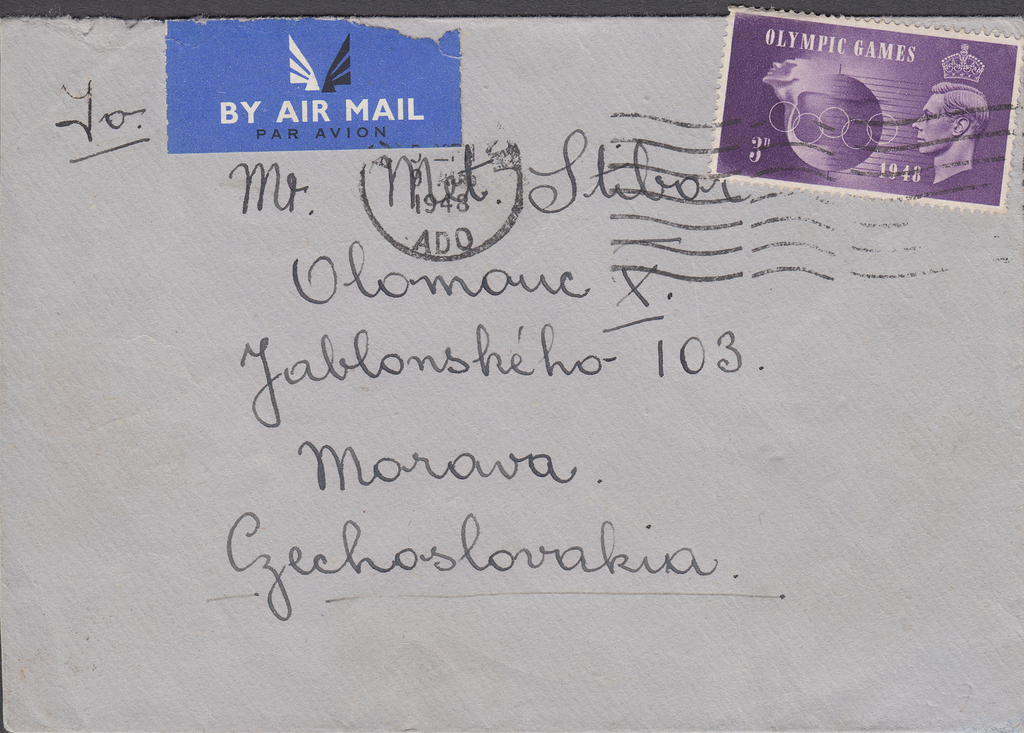 To.
BY AIR MAIL
PAR AVION
OLYMPIC GAMES
3D
1948
1948
ADO
Mr. Met. Stibor
Olomouc X.
Jablonského 103.
Morava.
Czechoslovakia.